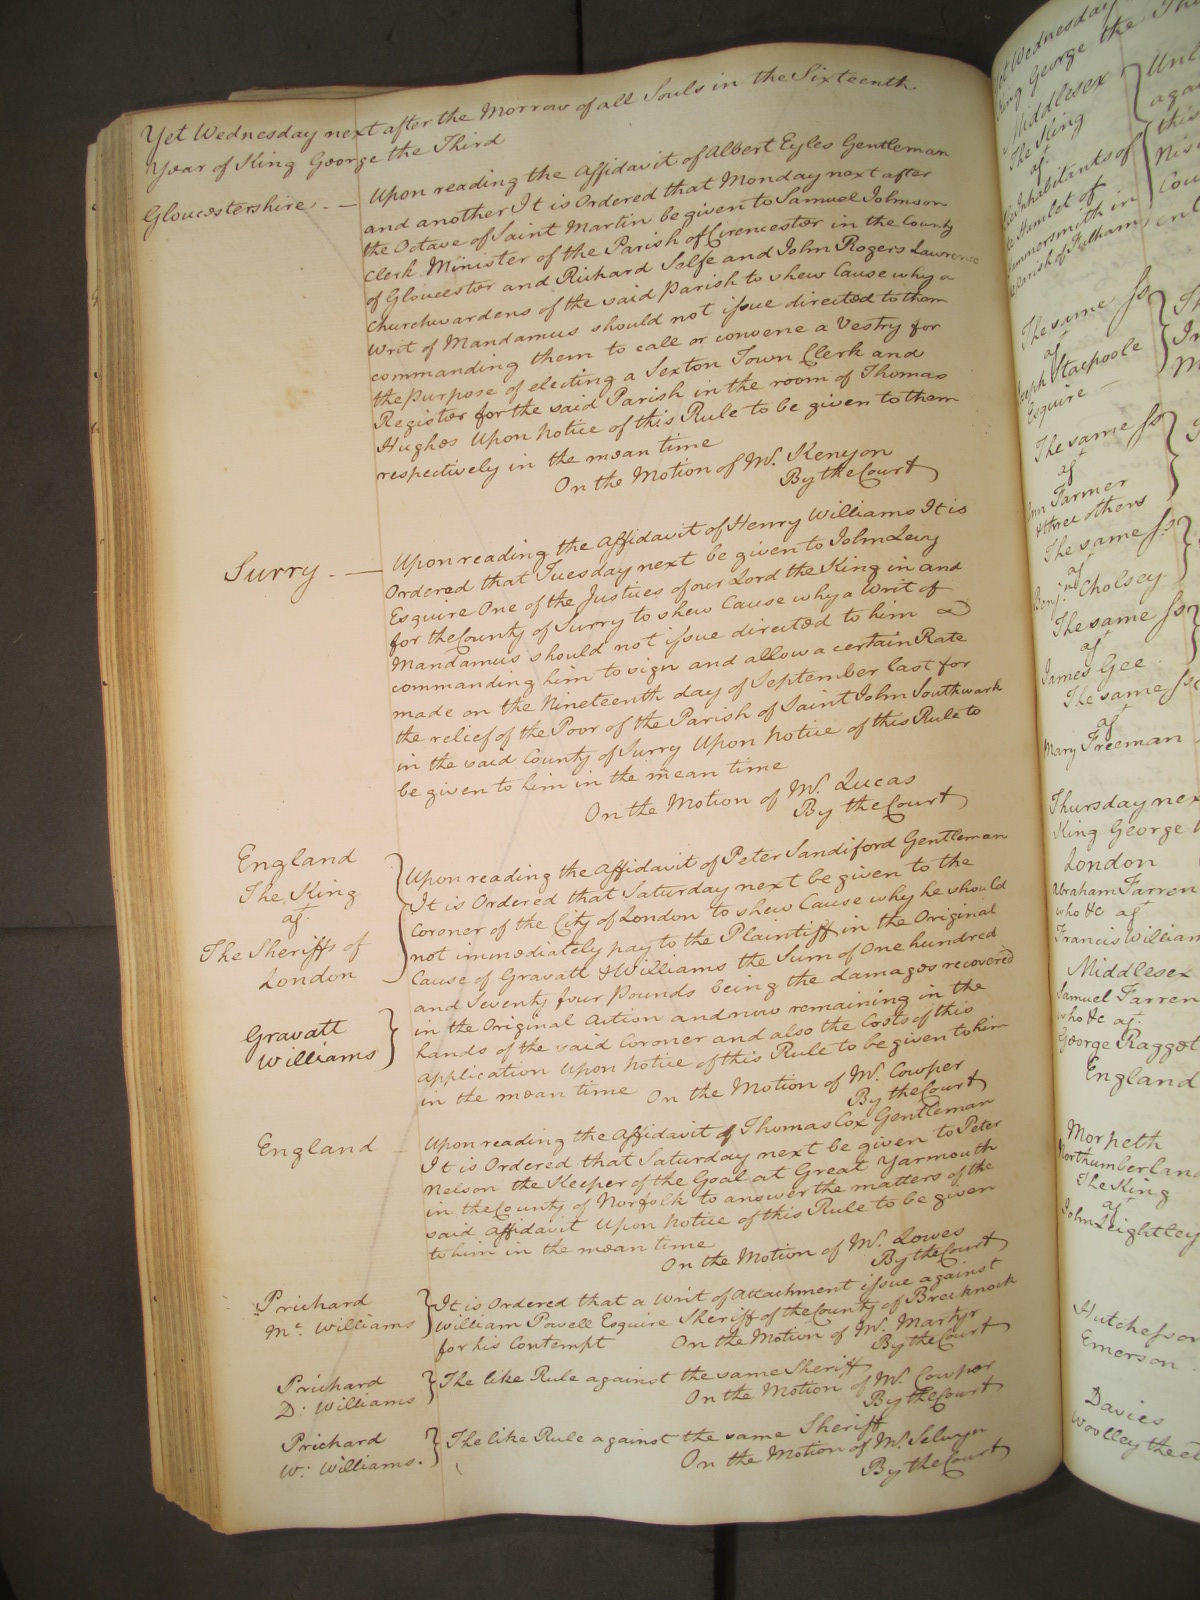 Yet Wednesday next after the Morrow of all Souls in the Sixteenth
Year of King George the Third
Gloucestershire. —
Upon reading the Affidavit of Albert Eyles Gentleman
and another It is Ordered that Monday next after
the Octave of Saint Martin be given to Samuel Johnson
Clerk Minister of the Parish of Cirencester in the County
of Gloucester and Richard Selfe and John Rogers Lawrence
Churchwardens of the said Parish to shew Cause why a
Writ of Mandamus should not issue directed to them
commanding them to call or convene a Vestry for
the purpose of electing a Sexton Town Clerk and
Register for the said Parish in the room of Thomas
Hughes Upon Notice of this Rule to be given to them
respectively in the mean time
On the Motion of Mr. Kenyon
By the Court
Surry. —
Upon reading the Affidavit of Henry Williams It is
Ordered that Tuesday next be given to John Levy
Esquire One of the Justices of our Lord the King in and
for the County of Surry to shew Cause why a Writ of
Mandamus should not issue directed to him
commanding him to sign and allow a certain Rate
made on the Nineteenth day of September last for
the relief of the Poor of the Parish of Saint John Southwark
in the said County of Surry Upon Notice of this Rule to
be given to him in the mean time
On the Motion of Mr. Lucas
By the Court
England
The King
agt.
The Sheriffs of
London
Gravatt
Williams
Upon reading the Affidavit of Peter Sandiford Gentleman
It is Ordered that Saturday next be given to the
Coroner of the City of London to shew Cause why he should
not immediately pay to the Plaintiff in the Original
Cause of Gravatt & Williams the Sum of One hundred
and Seventy four Pounds being the damages recovered
in the Original Action and now remaining in the
hands of the said Coroner and also the Costs of this
application Upon Notice of this Rule to be given to him
in the mean time On the Motion of Mr. Cowper
By the Court
England —
Upon reading the Affidavit of Thomas Cox Gentleman
It is Ordered that Saturday next be given to Peter
Nelson the Keeper of the Goal at Great Yarmouth
in the County of Norfolk to answer the matters of the
said Affidavit Upon Notice of this Rule to be given
to him in the mean time
On the Motion of Mr. Lowes
By the Court
Prichard
Mc. Williams
It is Ordered that a Writ of Attachment issue against
William Powell Esquire Sheriff of the County of Brecknock
for his Contempt On the Motion of Mr. Martyr
By the Court
Prichard
D: Williams
The like Rule against the same Sheriff
On the Motion of Mr. Cowper
By the Court
Prichard
W: Williams.
The like Rule against the same Sheriff
On the Motion of Mr. Selwyn
By the Court
Yet Wednesday
King George the Thi
Middlesex
The King
agt
The Inhabitants of
the Hamlet of
Hammersmith in
Parish of Fulham
The same
agt
Joseph Stacpoole
Esquire
The same
agt
Ann Farmer
& three others
The same
agt
Benjn. Cholsey.
The same
agt
James Gee
The same
agt
Mary Freeman
Thursday nex
King George
London
Abraham Farren
who &c agt
Francis William
Middlesex
Samuel Farren
who &c agt.
George Raggot
England
Morpeth
Northumberland
The King
agt
John Leightley
Hutchesson
Emerson
Davies
Woolley the